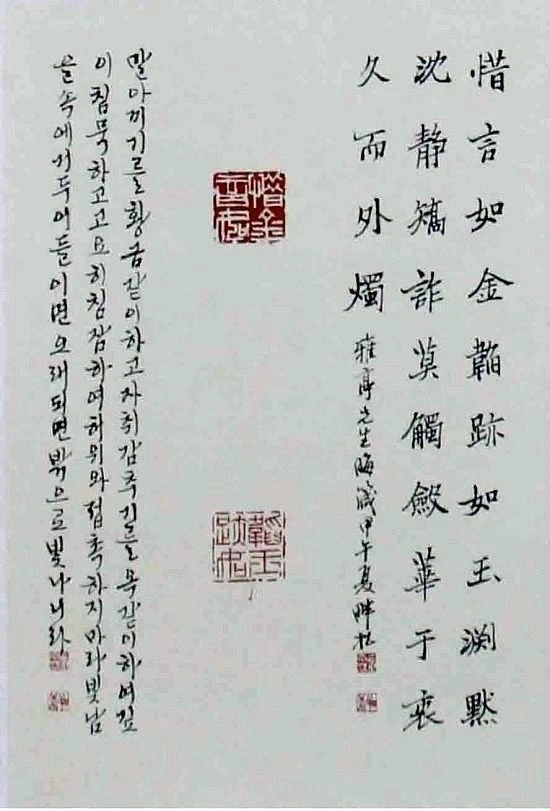 惜言如金韜跡如玉淵默
沈静矯詐莫觸斂華于衷
久而外燭 雅亭先生晦箴甲午夏
말아끼기를황금같이하고자취감추기를옥같이하여깊
이침묵하고고요히침잠하여허위와접촉하지마라빛남
을속에거두어들이면오래되면밖으로빛나니라